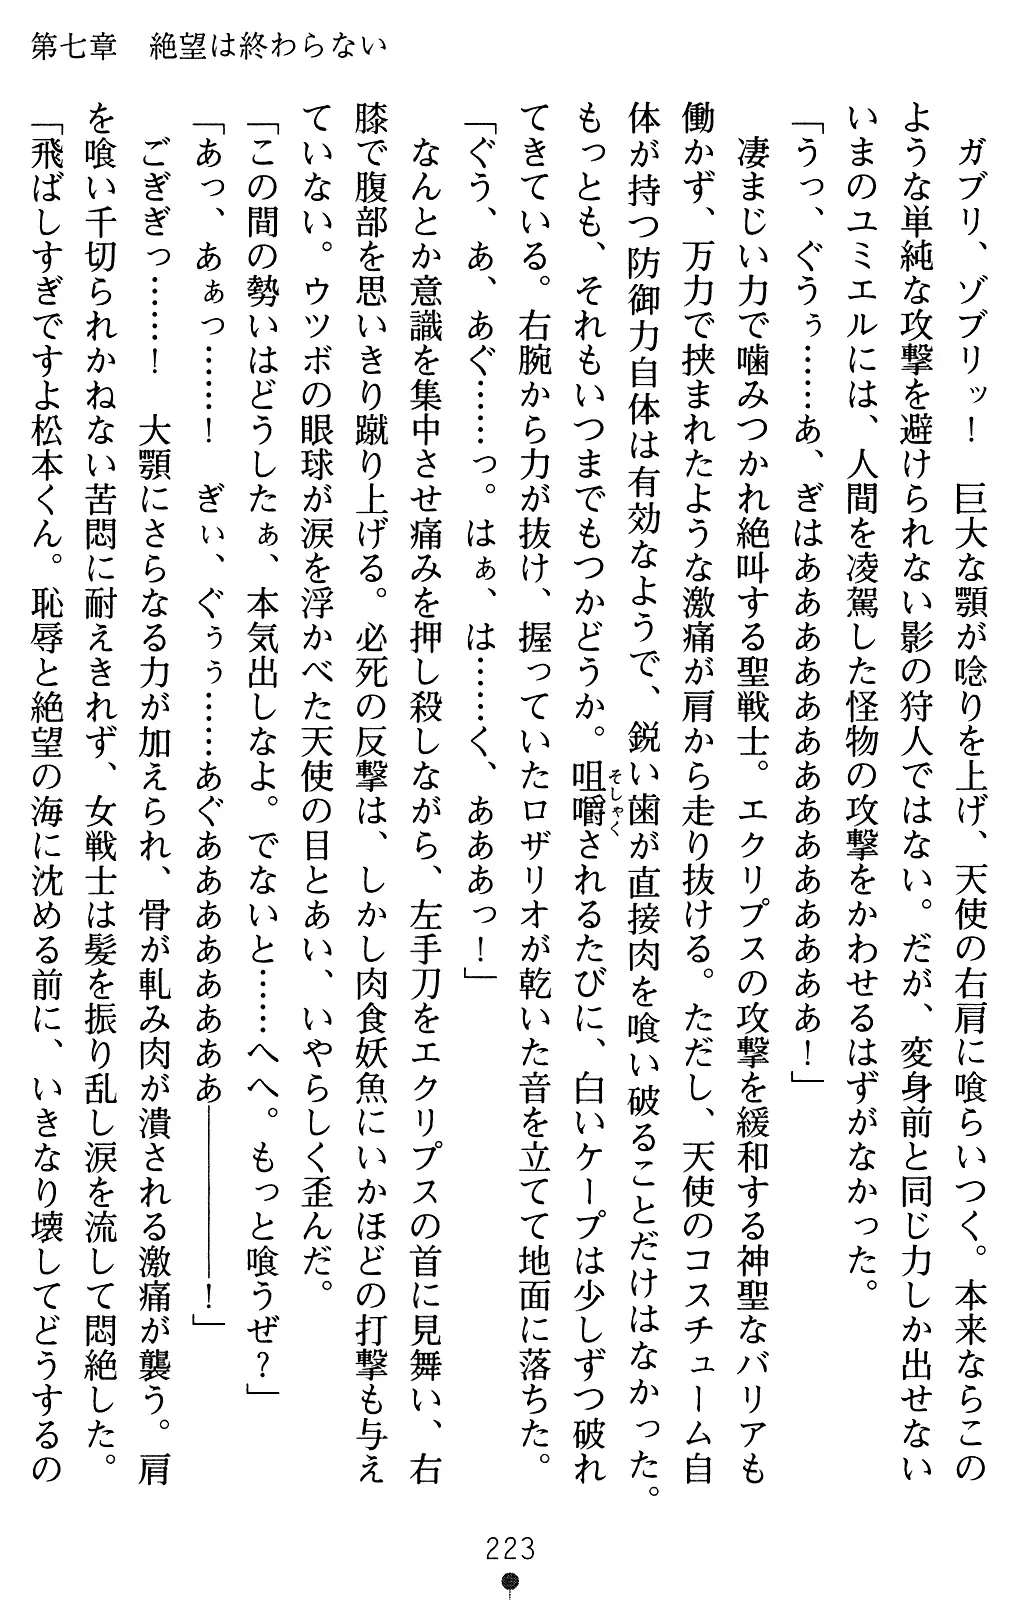 第七章　絶望は終わらない
　ガブリ、ゾブリッ！　巨大な顎が唸りを上げ、天使の右肩に喰らいつく。本来ならこの
ような単純な攻撃を避けられない影の狩人ではない。だが、変身前と同じ力しか出せない
いまのユミエルには、人間を凌駕した怪物の攻撃をかわせるはずがなかった。
「うっ、ぐうぅ……あ、ぎはああああああああああああああ！」
　凄まじい力で噛みつかれ絶叫する聖戦士。エクリプスの攻撃を緩和する神聖なバリアも
働かず、万力で挟まれたような激痛が肩から走り抜ける。ただし、天使のコスチューム自
体が持つ防御力自体は有効なようで、鋭い歯が直接肉を喰い破ることだけはなかった。
もっとも、それもいつまでもつかどうか。咀嚼されるたびに、白いケープは少しずつ破れ
そしゃく
てきている。右腕から力が抜け、握っていたロザリオが乾いた音を立てて地面に落ちた。
「ぐう、あ、あぐ……っ。はぁ、は……く、あああっ！」
　なんとか意識を集中させ痛みを押し殺しながら、左手刀をエクリプスの首に見舞い、右
膝で腹部を思いきり蹴り上げる。必死の反撃は、しかし肉食妖魚にいかほどの打撃も与え
ていない。ウツボの眼球が涙を浮かべた天使の目とあい、いやらしく歪んだ。
「この間の勢いはどうしたぁ、本気出しなよ。でないと……へへ。もっと喰うぜ？」
「あっ、あぁっ……！　ぎぃ、ぐぅぅ……あぐああああああああ――――！」
　ごぎぎっ……！　大顎にさらなる力が加えられ、骨が軋み肉が潰される激痛が襲う。肩
を喰い千切られかねない苦悶に耐えきれず、女戦士は髪を振り乱し涙を流して悶絶した。
「飛ばしすぎですよ松本くん。恥辱と絶望の海に沈める前に、いきなり壊してどうするの
223